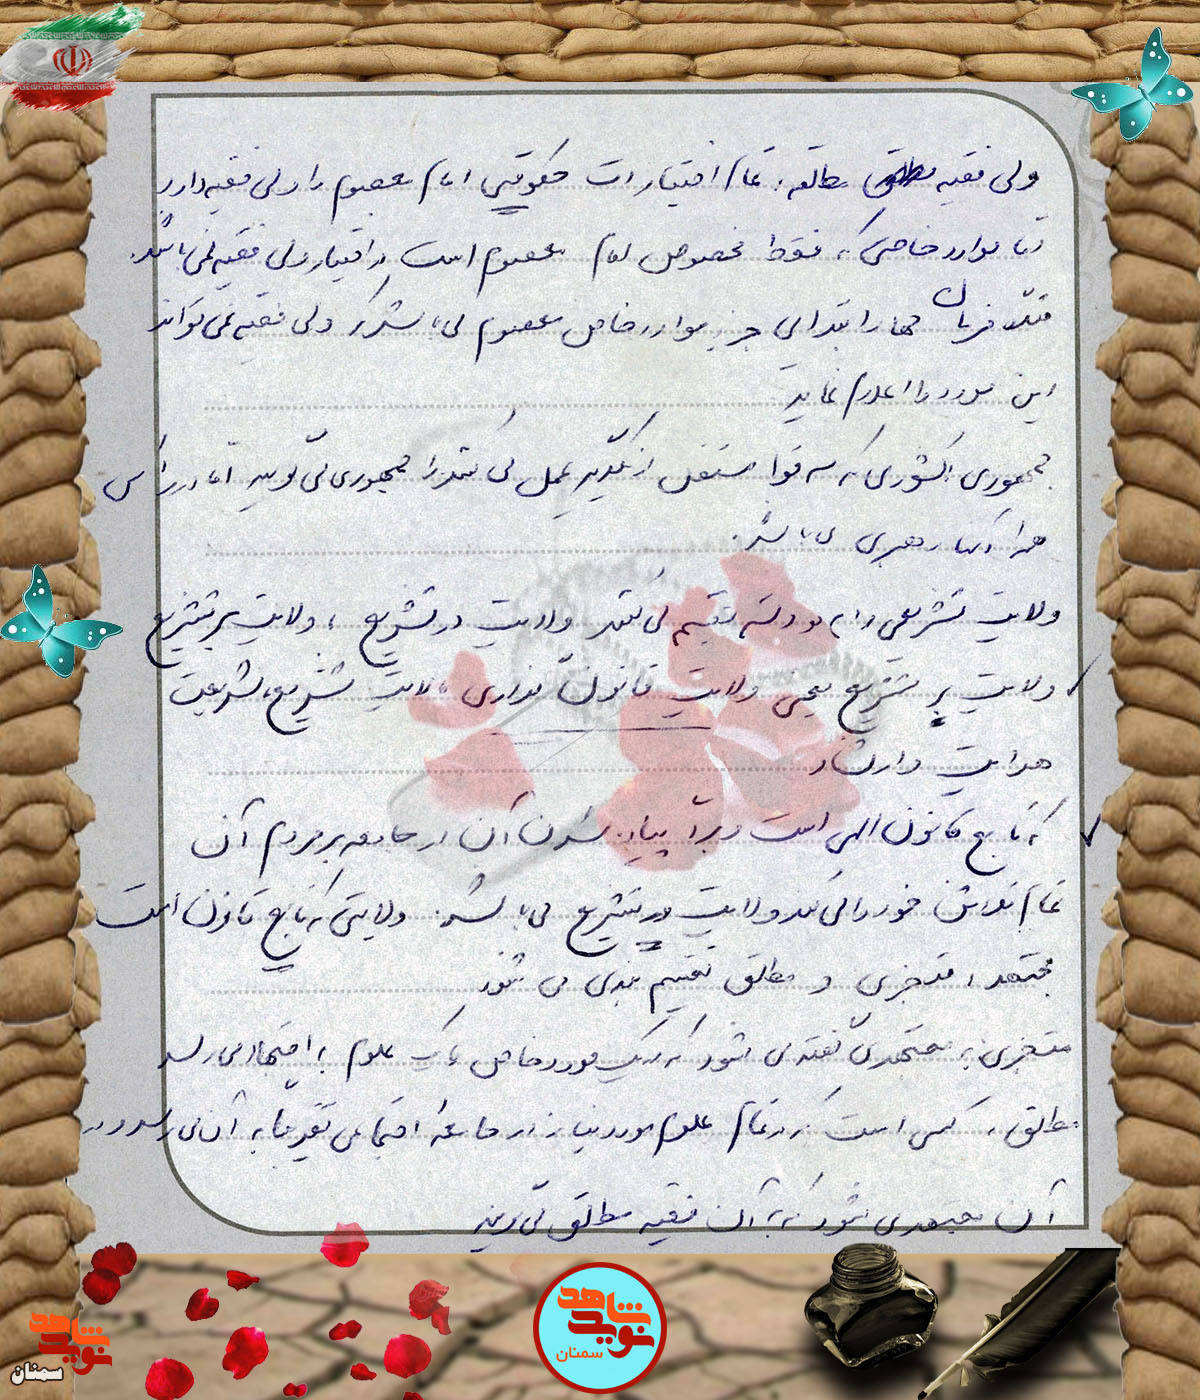 ولی فقیه مطلق مطلقه: تمام اختیارات حکومتی امام معصوم را ولی فقیه دارد
اما موارد خاصی که فقط مخصوص امام معصوم است در اختیار ولی فقیه نمی باشد.
مثلا فرمان جهاد ابتدایی جزء موارد خاص معصوم می باشد که ولی فقیه نمی تواند
این مورد را اعلام نماید
جمهوری: کشوری که سه قوا مستقل از یکدیگر عمل می کنند را جمهوری می گویند اما در رأس
همه اینها رهبری می باشد.
ولایت تشریعی را به دو دسته تقسیم می کنند ولایت در تشریع ، ولایت بر تشریع
ولایت بر تشریع یعنی ولایت قانون گذاری ، ولایت تشریع، شریعت
هدایت و ارشاد
که تابع قانون الهی است و برای پیاده شدن آن در جامعه بر مردم آن
تمام تلاش خود را می کند ولایت در تشریع می باشد. ولایتی که تابع قانون است
مجتهد: متجزی و مطلق تقسیم بندی می شود
متجزی: به مجتهدی گفته می شود که در یک مورد خاص یک باب علوم به اجتهاد می رسد
مطلق: کسی است که در تمام علوم مورد نیاز در جامعه اجتماعی تقریبا به آن می رسد و در
آن مجتهدی شود که به آن فقیه مطلق می گویند
شاهد
نوید
سمنان
شاهد
نوید
سمنان